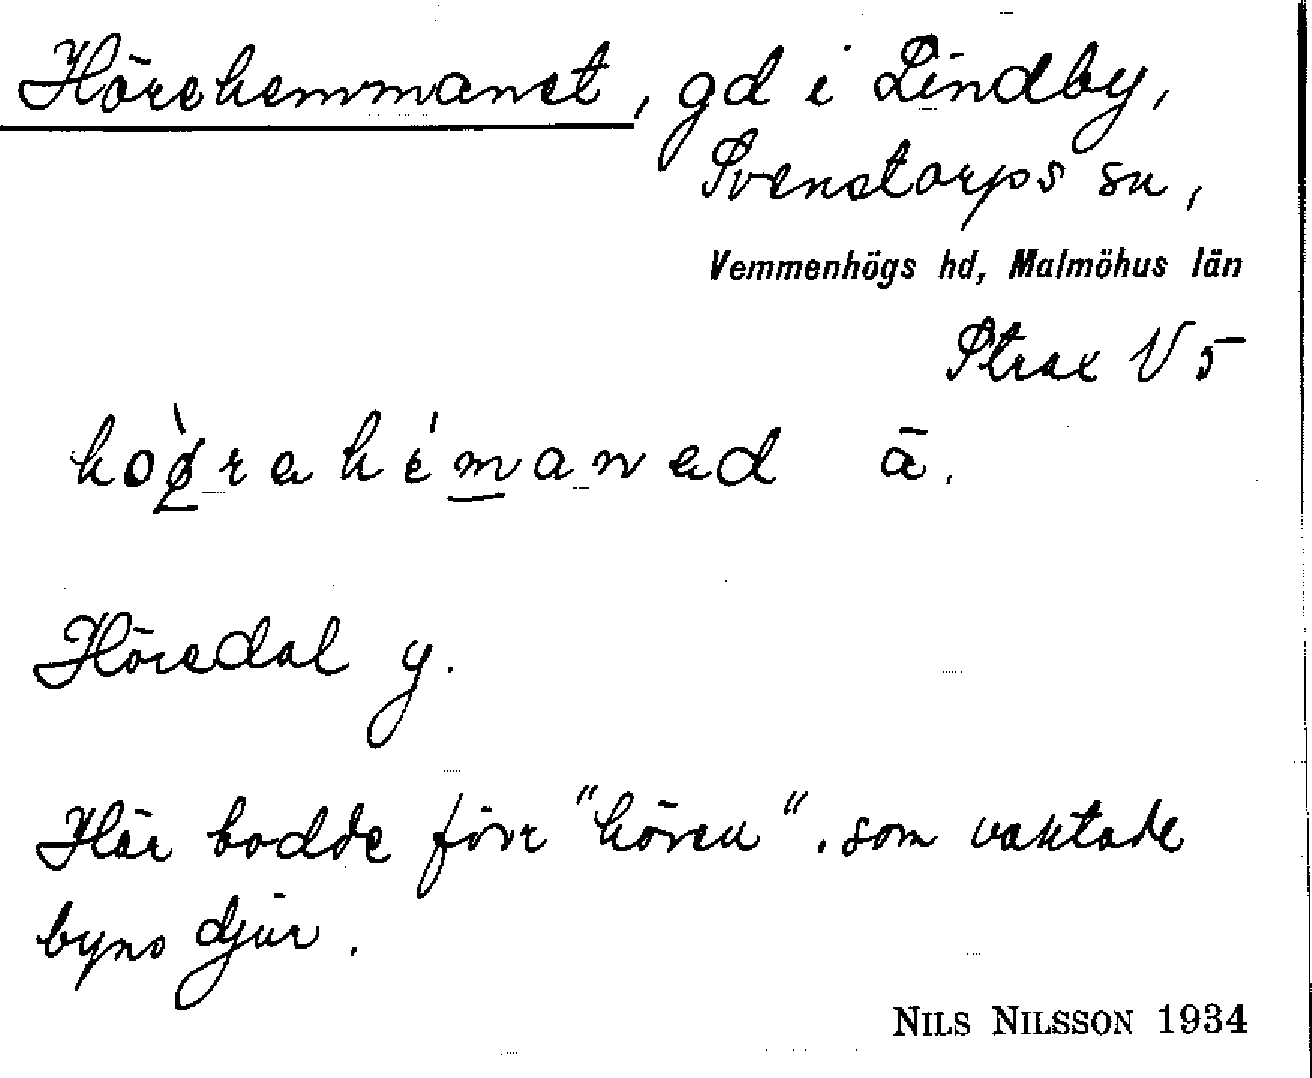 Hörehemmanet, gd i Lindby,
Svenstorps sn,
Vemmenhögs hd, Malmöhus län
Strax V 5
ä.
Höredal y.
Här bodde förr "hören". som vaktade
byns djur.
NILS NILSSON 1934